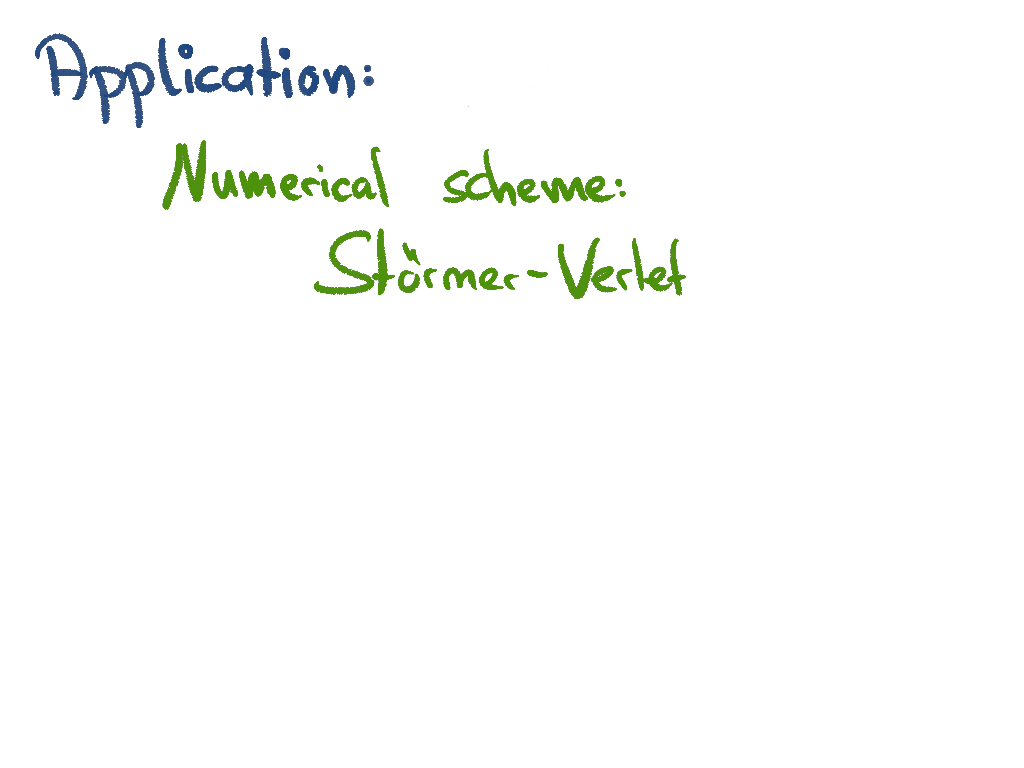 Application:
Numerical scheme:
Störmer-Verlet